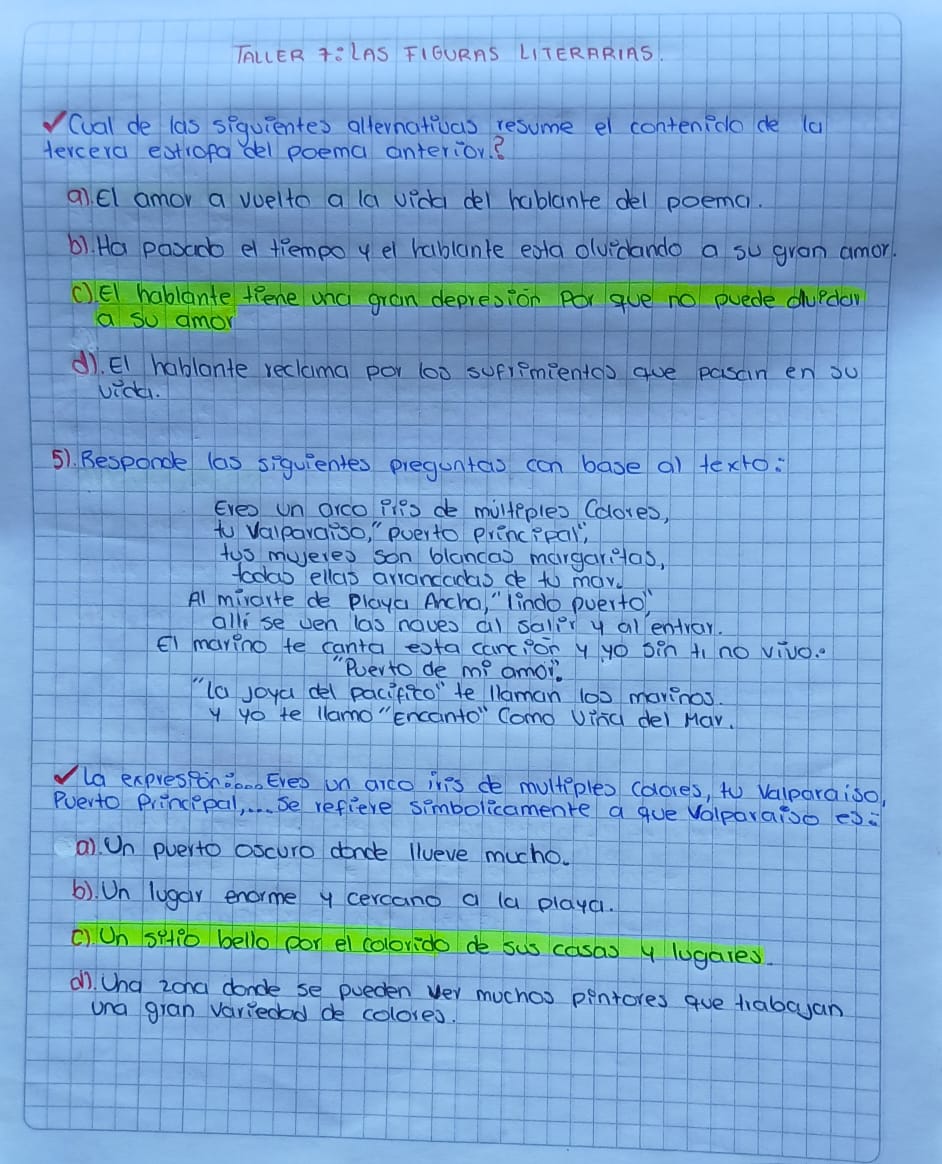 TALLER 7: LAS FIGURAS LITERARIAS.
✓Cual de las siguientes alternativas resume el contenido de la
tercera estrofa del poema anterior.?
a).El amor a vuelto a la vida del hablante del poema.
b).Ha pasado el tiempo y el hablante esta olvidando a su gran amor.
c).El hablante tiene una gran depresión por que no puede olvidar
a su amor
d).El hablante reclama por los sufrimientos que pasan en su
vida.
5).Responde las siguientes preguntas con base al texto:
Eres un arco iris de múltiples Colores,
tu Valparaiso, "puerto principal",
tus mujeres son blancas margaritas,
todas ellas arrancadas de tu mar.
Al mirarte de Playa Ancha, "lindo puerto",
alli se ven las naves al salir y al entrar.
El marino te canta esta canción y yo sin ti no vivo.
"Puerto de mi amor".
"la joya del pacifico" te llaman los marinos.
y yo te llamo "Encanto" Como Viña del Mar.
✓La expresión:....Eres un arco iris de multiples colores, tu Valparaiso,
Puerto Principal,....Se refiere simbolicamente a que Valparaiso es:
a).Un puerto oscuro donde llueve mucho.
b).Un lugar enorme y cercano a la playa.
c).Un sitio bello por el colorido de sus casas y lugares.
d).Una zona donde se pueden ver muchos pintores que trabajan
una gran variedad de colores.